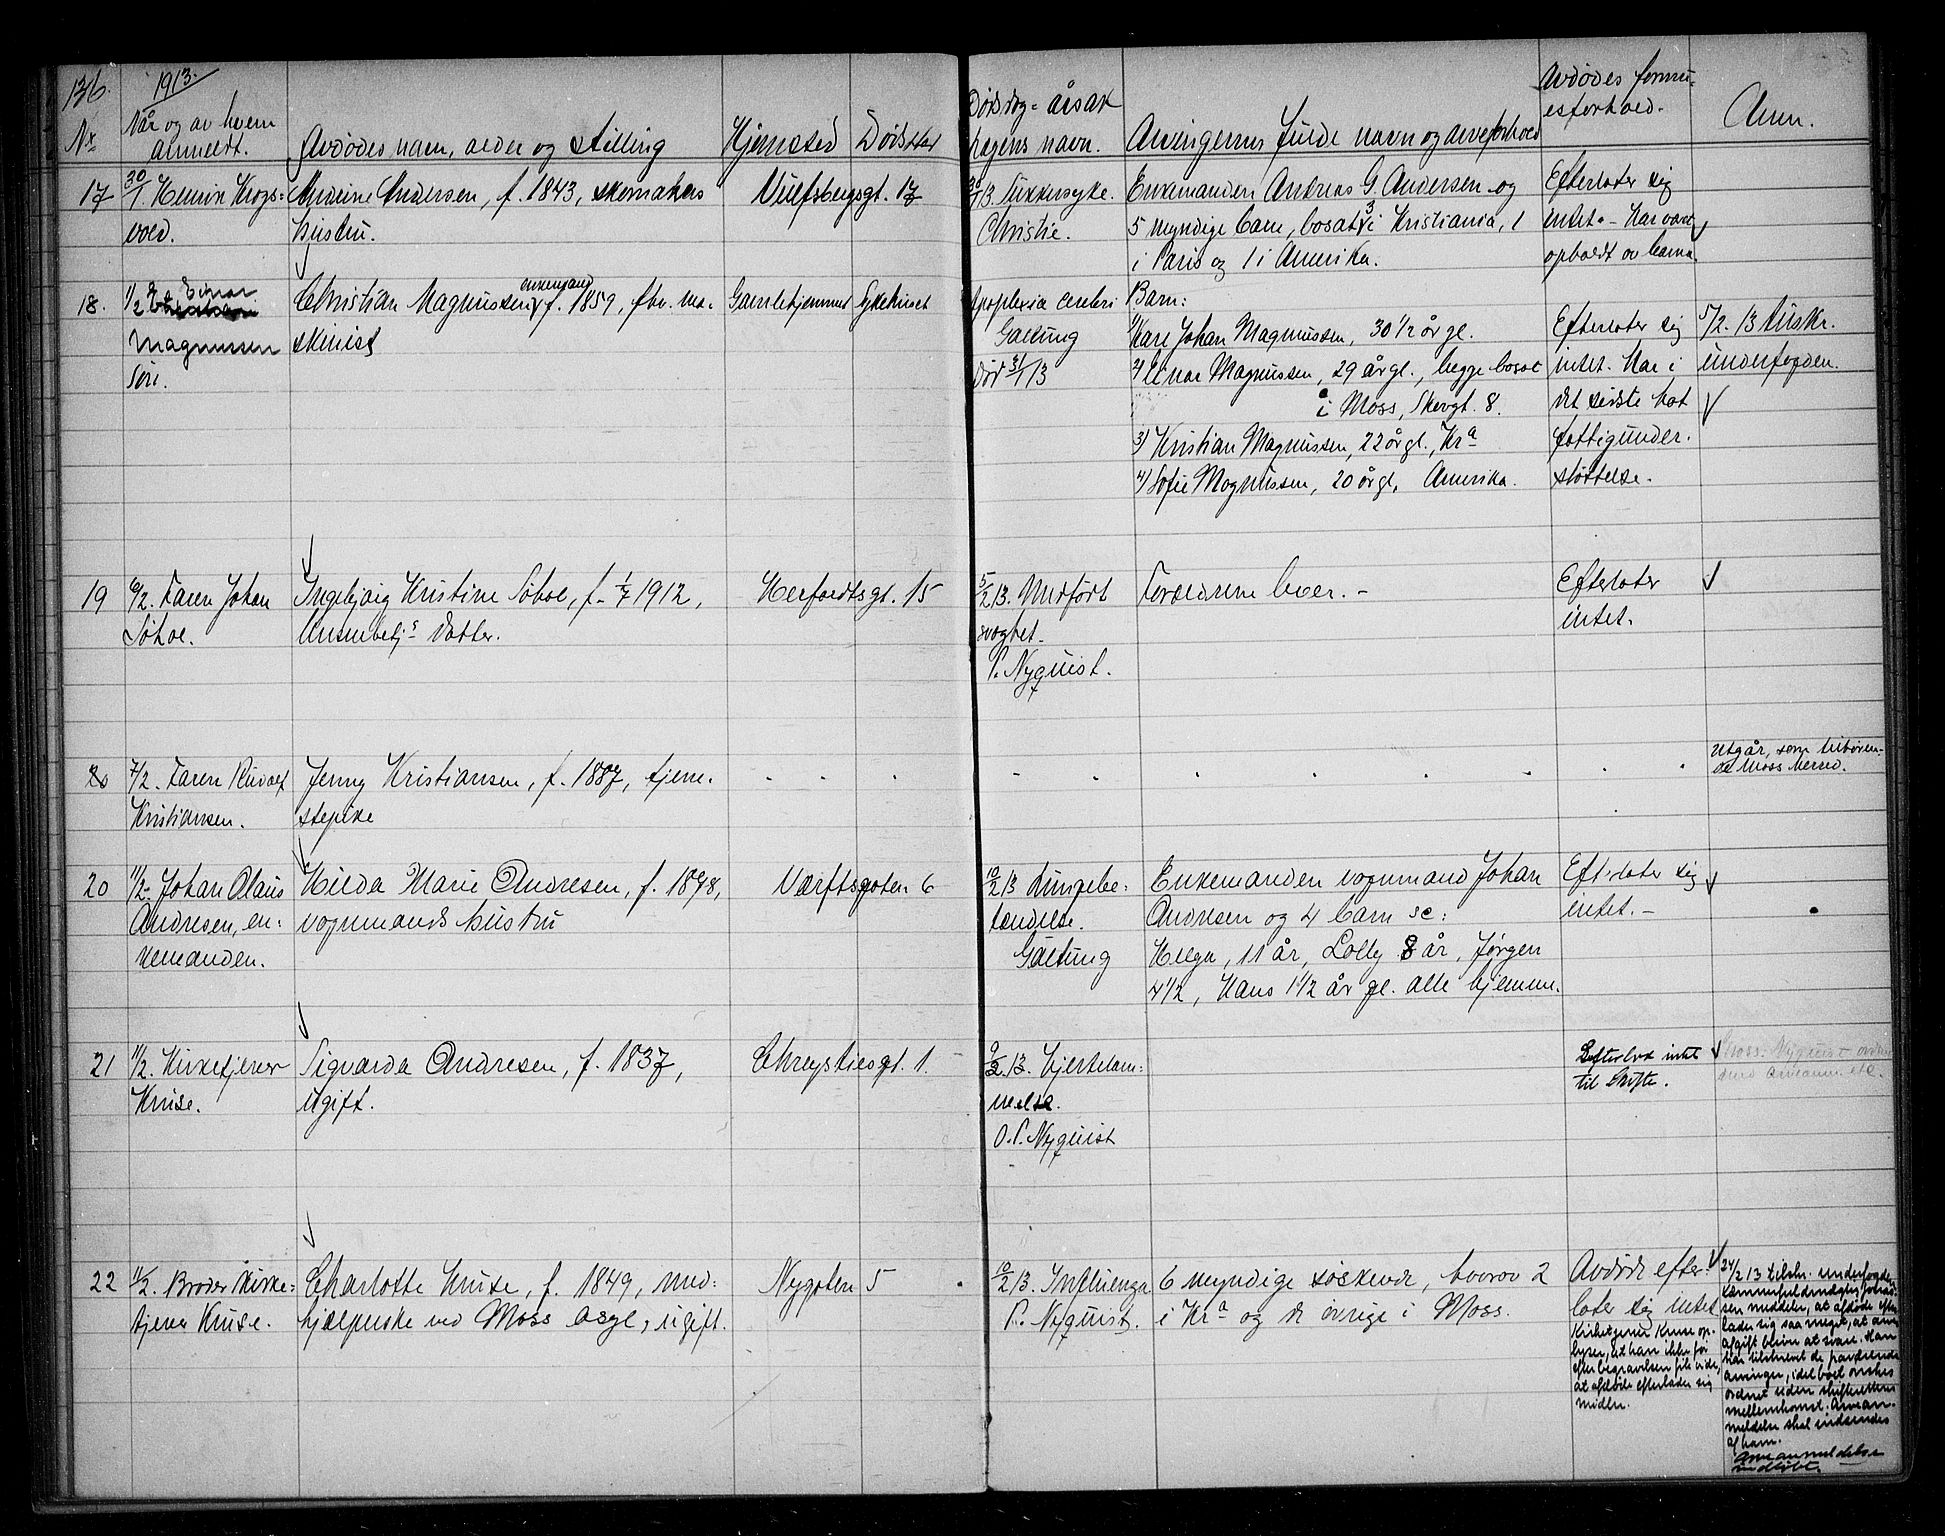 136.
1913.
Nr
Når og av hvem
anmeldt.
Avdødes navn, alder og stilling
Hjemsted
Dødssted
Dødsdag - årsak
lægens navn.
Arvingernes fulde navn og arveforhold
Avdødes formu-
esforhold.
Anm.
17
30/1 Henrik Krogs-
vold.
Andrine Andersen, f. 1843, skomakers
hustru.
Vulfsbergsgt. 17
30/1 13 Sukkersyke.
Christie.
Enkemanden Andreas G. Andersen og
5 myndige barn, bosat 3 i Kristiania, 1
i Paris og 1 i Amerika.
Efterlater sig
intet. - Har vært
opholdt av barna
18.
1/2 Einar
Magnussen
søn.
Christian Magnussen, enkemand f. 1859, fhv. ma-
skinist
Gamlehjemmet
Sykehuset
Apoplexia cerebri
Galtung
død 31/1 13
Barn:
1) Kare Johan Magnussen, 30 1/2 år gl.
2) Einar Magnussen, 29 år gl., begge bosat
i Moss, Skovgt. 8.
3) Kristian Magnussen, 22 år gl., Kra
4) Sofie Magnussen, 20 år gl, Amerika.
Efterlater sig
intet. Har i
det sidste hat
fattigunder-
støttelse.
5/2. 13 tilskr.
underfogden.
19
6/2. Faren Johan
Søhol.
Ingebjørg Kristine Søhol, f. 1/7 1912,
Ansbetj's datter.
Herfordtsgt. 15
5/2 13. Medfødt
svaghet.
P. Nyquist.
Forældrene lever. -
Efterlater
intet.
20
7/2. Faren Rudolf
Kristiansen.
Jenny Kristiansen, f. 1887, tjene-
stepike
Utgår, som tilhøren-
de Moss herred.
20
11/2. Johan Olaus
Andresen, en-
kemanden.
Hilda Marie Andresen, f. 1878,
vognmands hustru
Værftsgaten 6
10/2 13 Lungebe-
tændelse.
Galtung
Enkemanden vognmand Johan
Andresen og 4 barn sc:
Helga, 11 år, Lolly 8 år, Jørgen
4 1/2, Hans 1 1/2 år gl. alle hjemme.
Efterlater sig
intet. -
21
11/2. Kirketjener
Kruse.
Sigvarda Andresen, f. 1837,
ugift.
Chrystiesgt. 1.
9/2. 13. Hjertelam-
melse.
O. P. Nyquist
Efterlot intet
til Skifte.
Nyquist
22
11/2. Broder Kirke-
tjener Kruse.
Charlotte Kruse, f. 1849, med-
hjælperske ved Moss asyl, ugift.
Nygaten 5
10/2 13. Influenza
P. Nyquist.
6 myndige søskende, hvorav 2
i Kra og de øvrige i Moss.
Avdøde efter-
later sig intet
Kirketjener Kruse op-
lyser, at han ikke før
efter begravelsen fik vide,
at afdøde efterlader sig
midler.
24/2 13 tilskr. underfogden
sen meddeler, at afdøde efter-
lader sig saa meget, at arve-
afgift bliver at svare. Han
har tilskrevet de paarørende
arvinger, idet boet ønskes
ordnet uden skifterettens
mellemkomst. Arvean-
meldelse skal indsendes
af ham.
Arveanmeldelse
indløbt.